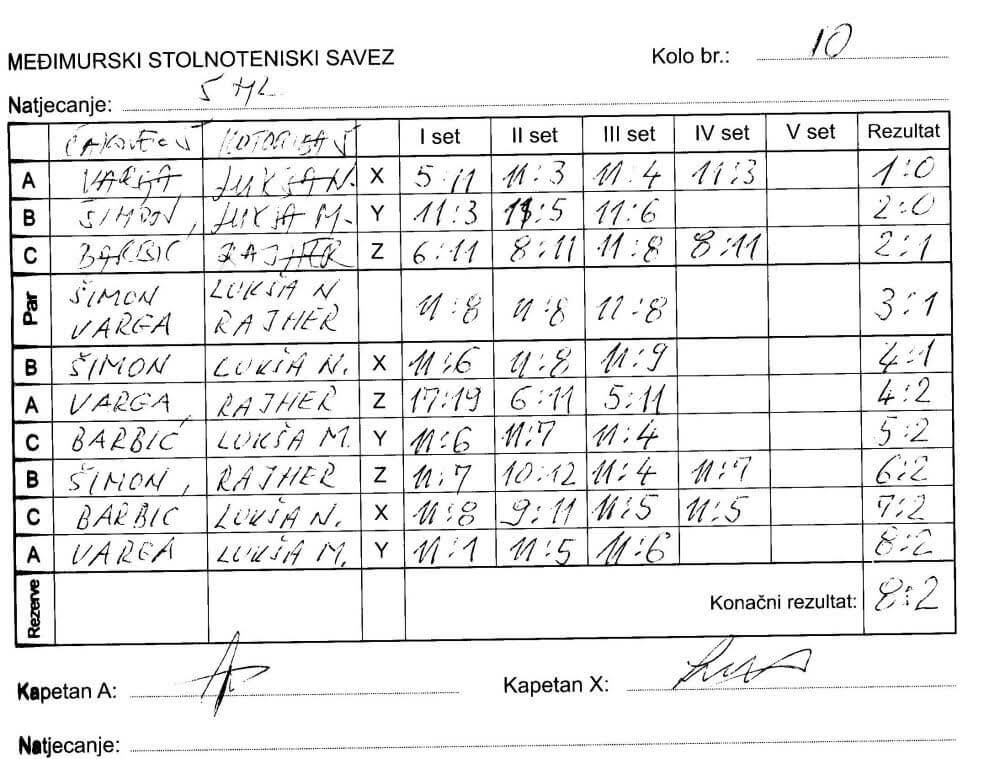 MEĐIMURSKI STOLNOTENISKI SAVEZ Kolo br.: 10
Natjecanje: 5 ML
ČAKOVEC 5 KOTORIBA 5 I set II set III set IV set V set Rezultat
A VARGA LUKŠA N. X 5:11 11:3 11:4 11:3 1:0
B ŠIMON, LUKŠA M. Y 11:3 11:5 11:6 2:0
C BARBIĆ RAJHER Z 6:11 8:11 11:8 8:11 2:1
Par ŠIMON LUKŠA N
VARGA RAJHER 11:8 11:8 11:8 3:1
B ŠIMON LUKŠA N. X 11:6 11:8 11:9 4:1
A VARGA, RAJHER Z 17:19 6:11 5:11 4:2
C BARBIĆ LUKŠA M. Y 11:6 11:7 11:4 5:2
B ŠIMON, RAJHER Z 11:7 10:12 11:4 11:7 6:2
C BARBIC LUKŠA N. X 11:8 9:11 11:5 11:5 7:2
A VARGA LUKŠA M. Y 11:1 11:5 11:6 8:2
Rezerve Konačni rezultat: 8:2
Kapetan A: Kapetan X:
Natjecanje: